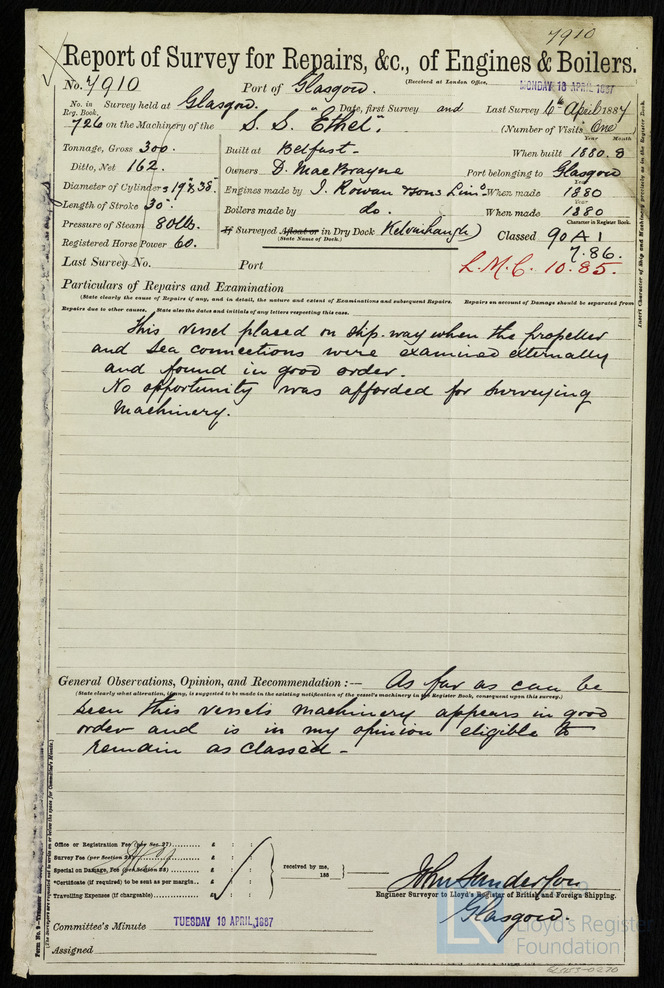 7910
Report of Survey for Repairs, &c., of Engines & Boilers.
No. 7910 Port of Glasgow. (Received at London Office, MONDAY 18 APRIL 1887
No. in Reg. Book. Survey held at Glasgow. Date, first Survey and Last Survey 6th April 1887
726 on the Machinery of the S. S. "Ethel". (Number of Visits One)
Tonnage, Gross 300. Built at Belfast. When built 1880. 8
Year Month
Ditto, Net 162. Owners D. MacBrayne Port belonging to Glasgow
Diameter of Cylinders 19" & 38". Engines made by J. Rowan & Sons Limd When made 1880
Year
Length of Stroke 30". Boilers made by do. When made 1880
Year
Pressure of Steam 80 lbs. If Surveyed Afloat or in Dry Dock Kelvinhaugh) Classed 90 A 1
(State Name of Dock.) Character in Register Book.
Registered Horse Power 60. 7.86.
Last Survey No. Port L. M. C. 10. 85.
Particulars of Repairs and Examination
(State clearly the cause of Repairs if any, and in detail, the nature and extent of Examinations and subsequent Repairs. Repairs on account of Damage should be separated from
Repairs due to other causes. State also the dates and initials of any letters respecting this case.
This vessel placed on slip-way when the propeller
and sea connections were examined externally
and found in good order.
No opportunity was afforded for surveying
machinery.
General Observations, Opinion, and Recommendation :— As far as can be
(State clearly what alteration, if any, is suggested to be made in the existing notification of the vessel's machinery in the Register Book, consequent upon this survey.)
seen this vessels machinery appears in good
order and is in my opinion eligible to
remain as classed -
Office or Registration Fee (per Sec. 27) £ : :
Survey Fee (per Section 28) £ : :
Special on Damage, Fee (per Section 28) £ : :
*Certificate (if required) to be sent as per margin £ : :
Travelling Expenses (if chargeable) £ : :
received by me,
188
John Sanderson
Engineer Surveyor to Lloyd's Register of British and Foreign Shipping.
Glasgow.
Committee's Minute TUESDAY 19 APRIL, 1887
Assigned
Lloyd's Register
Foundation
Insert Character of Ship and Machinery precisely as in the Register Book.